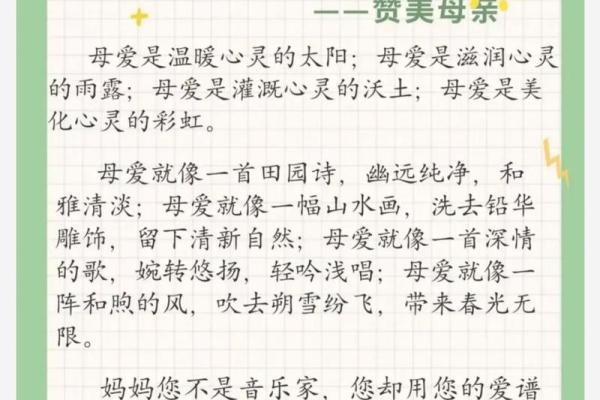 ——赞美母亲
母爱是温暖心灵的太阳；母爱是滋润心灵
的雨露；母爱是灌溉心灵的沃土；母爱是美
化心灵的彩虹。
母爱就像一首田园诗，幽远纯净，和
雅清淡；母爱就像一幅山水画，洗去铅华
雕饰，留下清新自然；母爱就像一首深情
的歌，婉转悠扬，轻吟浅唱；母爱就像一
阵和煦的风，吹去朔雪纷飞，带来春光无
限。
妈妈您不是音乐家，您却用您的爱谱